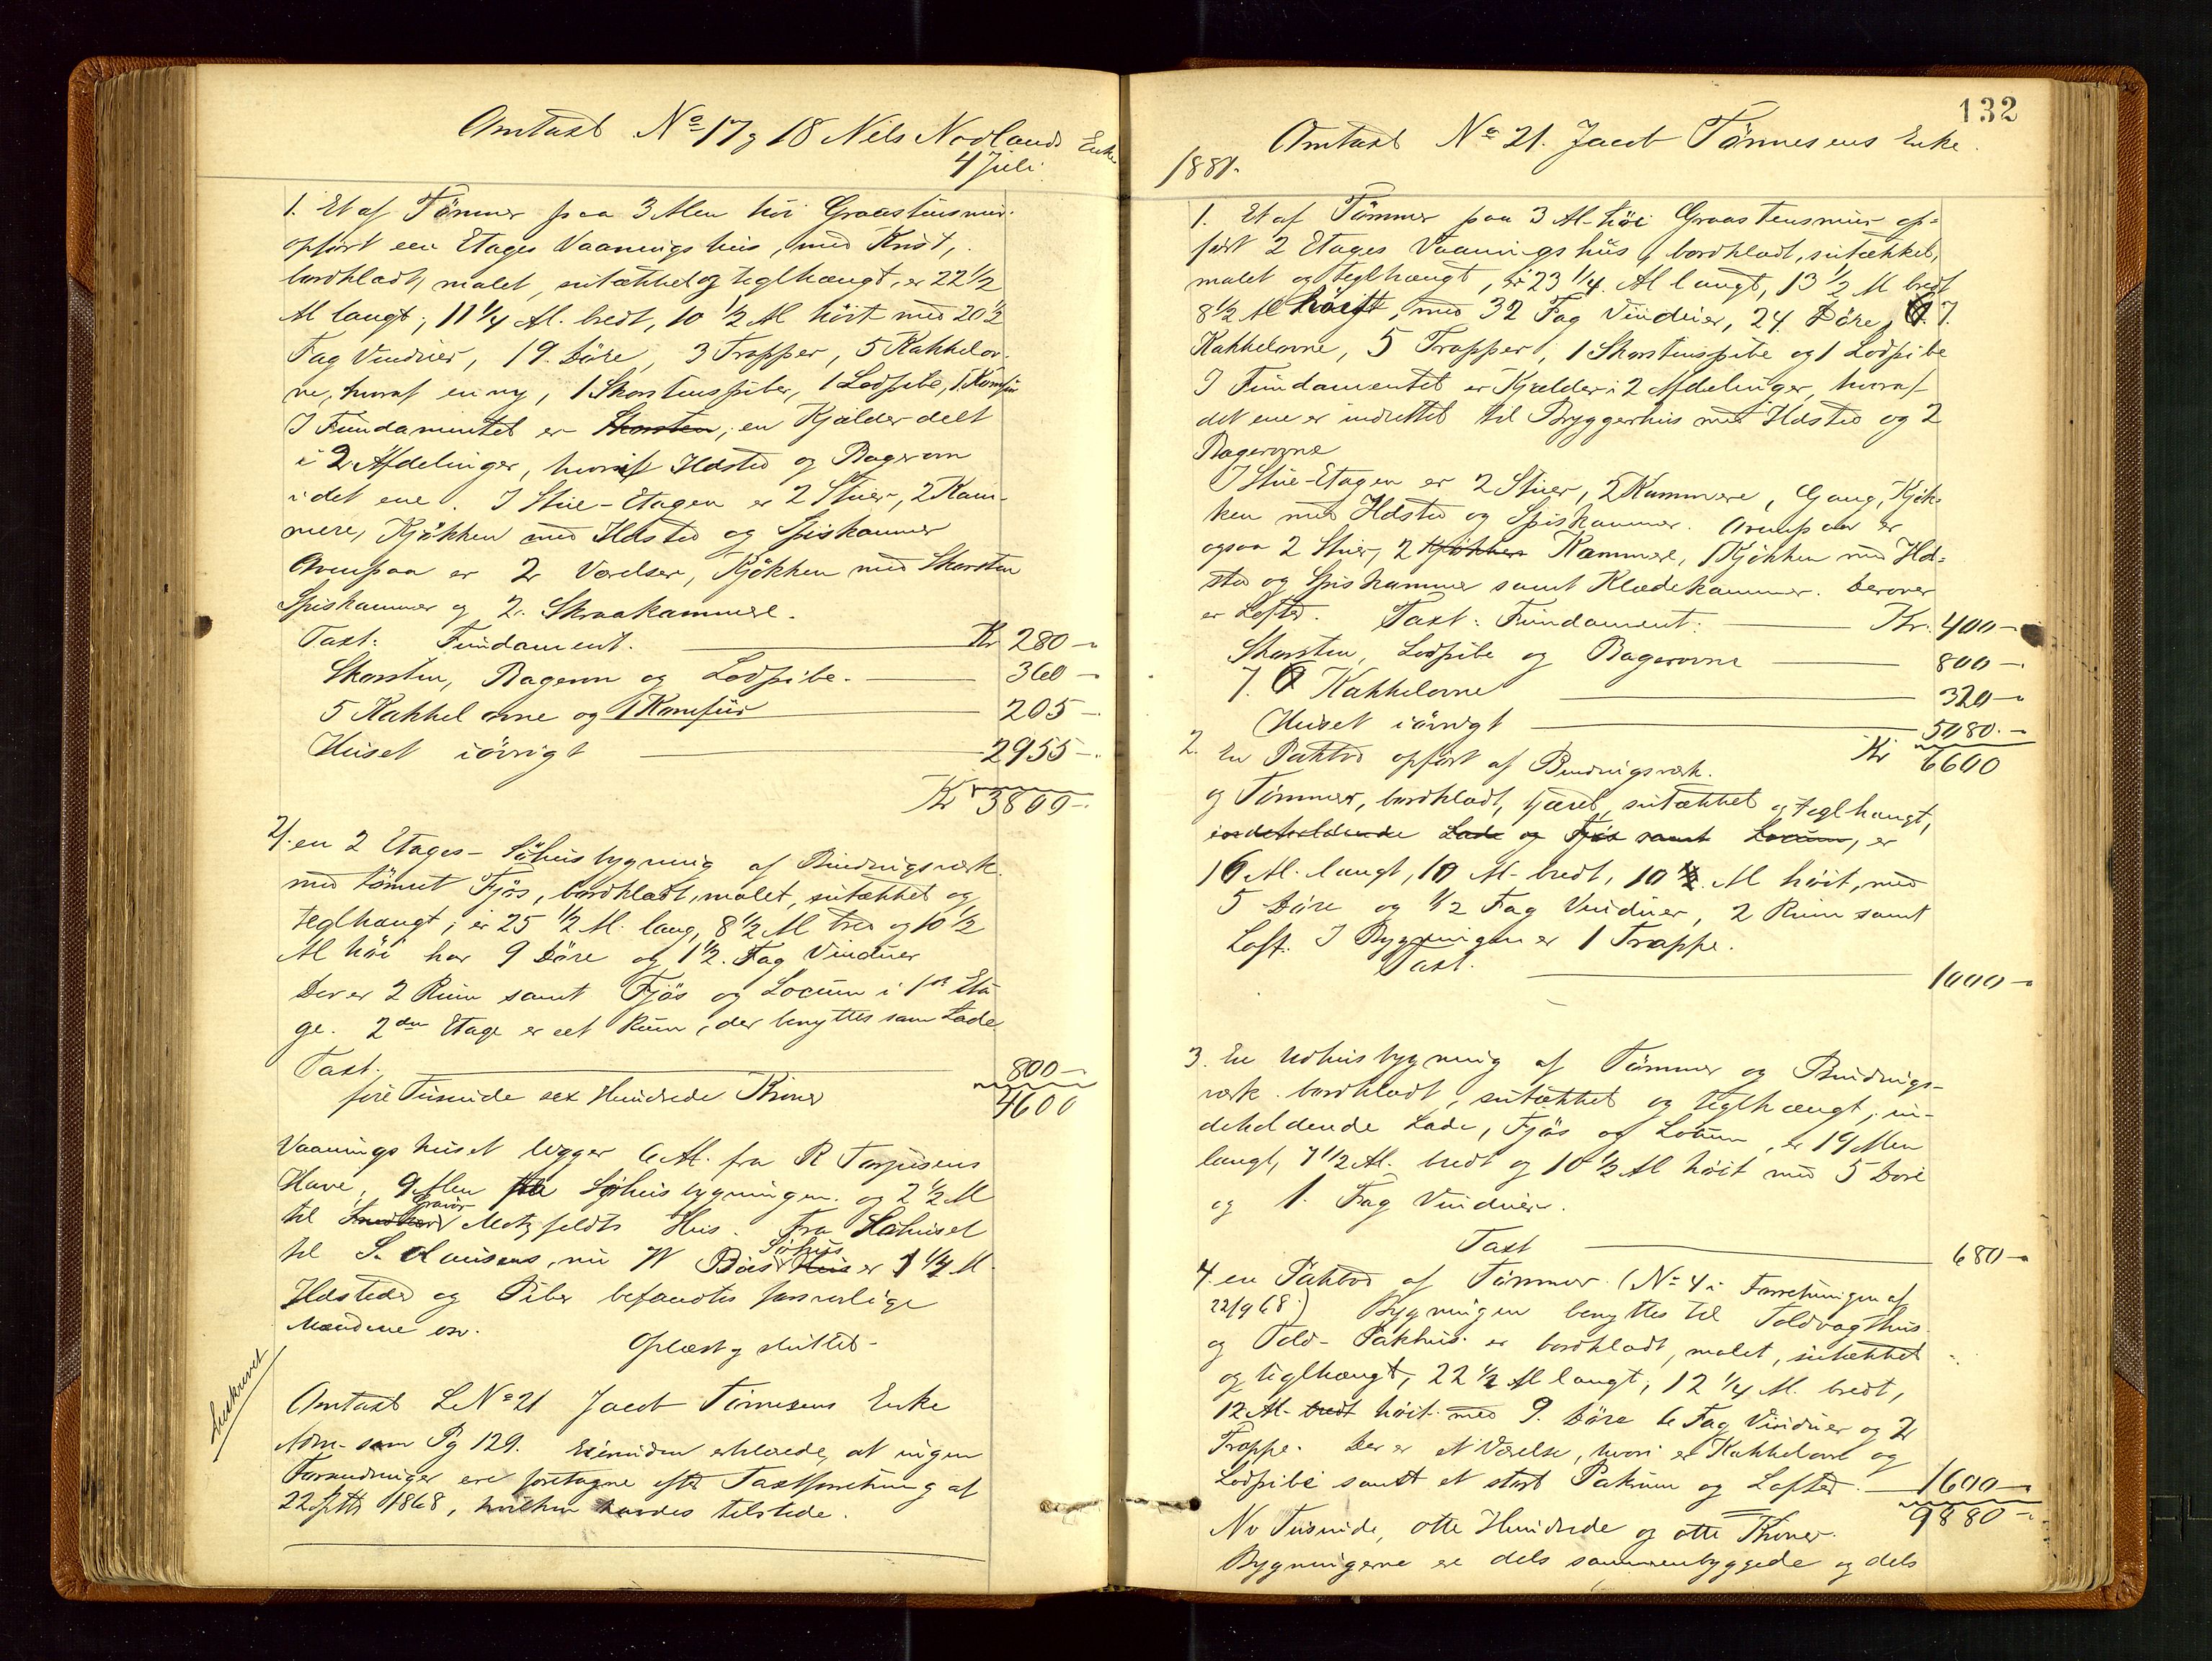 Omtaxt No 17 g 18 Nils Nodlands Enke
4 Juli
1. Et af Tömmer paa 3 Alen höi Graastensmur.
opfört een Etages Vaaningshus, med Kvist,
bordklædt, malet, sutækket og teglhængt, er 22 1/2
Al langt, 11 1/4 Al. bredt, 10 1/2 Al höit med 20 1/2
Fag Vinduer, 19. Döre, 3 Trapper, 5 Kakkelov-
ne, hvoraf en ny, 1 Skorstenspiber, 1 Lodpibe, 1 Komfur
I Fundamentet er Skorsten, en Kjælder delt
i 2 Afdelinger, hvoraf Ildsted og Bagerovn
i det ene. I Stue-Etagen er 2 Stuer, 2 Kam-
mere, Kjökken med Ildsted og Spiskammer
Ovenpaa er 2 Værelser, Kjökken med Skorsten
Spiskammer og 2. Skraakammere.
Taxt: Fundament. Kr 280 -
Skorsten, Bagerovn og Lodpibe. 360 -
5 Kakkelovne og 1 Komfur 205 -
Huset iövrigt 2955 -
Kr 3800 -
2/. en 2 Etages - Söhusbygning af Bindingsværk
med tömret Fjös, bordklædt, malet, sutækket og
teglhængt, er 25 1/2 Al. lang, 8 1/2 Al bred og 10 1/2
Al höi har 9 Döre og 1 1/2. Fag Vinduer
Der er 2 Rum samt Fjös og Locum i 1ste Eta
ge. 2den Etage er eet Rum, der benyttes som Lade
Taxt. 800 -
fire Tusinde sex Hundrede Kroner 4600
Vaaningshuset ligger 6 Al. fra R Torjusens
Have, 9 Alen fra Söhusbygningen og 2 1/2 Al
til Metzfeldts Hus. Fra Söhuset
til S. Clausens, nu W Boes Söhus er 1 1/4 Al
Ildsteder og Piber befandtes forsvarlige
Mændene osv.
Oplæst og sluttet -
Omtaxt L No 21 Jacob Tönnesens Enke
Adm. som Pg 129. Eiermanden erklærede, at ingen
Forandringer ere foretagne efter Taxtforretning af
22 Septbr 1868, hvilken havdes tilstede.
Indskrevet
132
Omtaxt No 21. Jacob Tönnesens Enke.
1881.
1. Et af Tömmer paa 3 Al höi Graastensmur op-
fört 2 Etages Vaaningshus, bordklædt, sutækket,
malet og teglhængt, er 23 1/4. Al langt, 13 1/2 Al bredt
8 1/2 Al höit, med 32 Fag Vinduer, 24 Döre, 7.
Kakkelovne, 5 Trapper, 1 Skorstenspibe og 1 Lodpibe
I Fundamentet er Kjælder i 2 Afdelinger, hvoraf
det ene er indrettet til Bryggerhus med Ildsted og 2
Bagerovne
I Stue-Etagen er 2 Stuer, 2 Kammere, Gang, Kjök-
ken med Ildsted og Spiskammer. Ovenpaa er
ogsaa 2 Stuer, 2 Kjökken Kammere, 1 Kjökken med Ild-
sted og Spiskammer samt Klædekammer. Derover
er Lofted. Taxt: Fundament: Kr. 400 -
Skorsten, Lodpibe og Bagerovne 800 -
7. Kakkelovne 320 -
Huset iövrigt 5080. -
Kr 6600
2. En Pakbod opfört af Bindingsværk.
og Tömmer, bordklædt, tjæret, sutækket og teglhængt,
indeholdende Lade og Fjös samt Locum, er
16 Al. langt, 10 Al. bredt, 10 Al höit, med
5 Döre og 1/2 Fag Vinduer, 2 Rum samt
Loft. I Bygningen er 1 Trappe.
Taxt. 1000 -
3. En Udhusbygning af Tömmer og Bindings-
værk. bordklædt, sutækket og teglhængt, in-
deholdende Lade, Fjös og Locum, er 19 Alen
langt, 7 1/2 Al. bredt og 10 1/2 Al höit med 5 Döre
og 1. Fag Vinduer.
Taxt 680 -
4. en Pakbod af Tömmer. (No 4 i Forretningen af
22/9 68.) Bygningen benyttes til Toldvagthus
og Told-Pakhus. er bordklædt, malet, sutækket
og teglhængt, 22 1/2 Al langt, 12 1/4 Al. bredt,
12 Al. bredt höit med 9. Döre 6 Fag Vinduer og 2
Trappe. Der er et Værelse, hvori er Kakkelovn og
Lodpibe samt et stort Pakrum og Lofted. 1600 -
9880 -
Ni Tusinde, otte Hundrede og otte Kroner.
Bygningerne ere dels sammenbyggede og dels